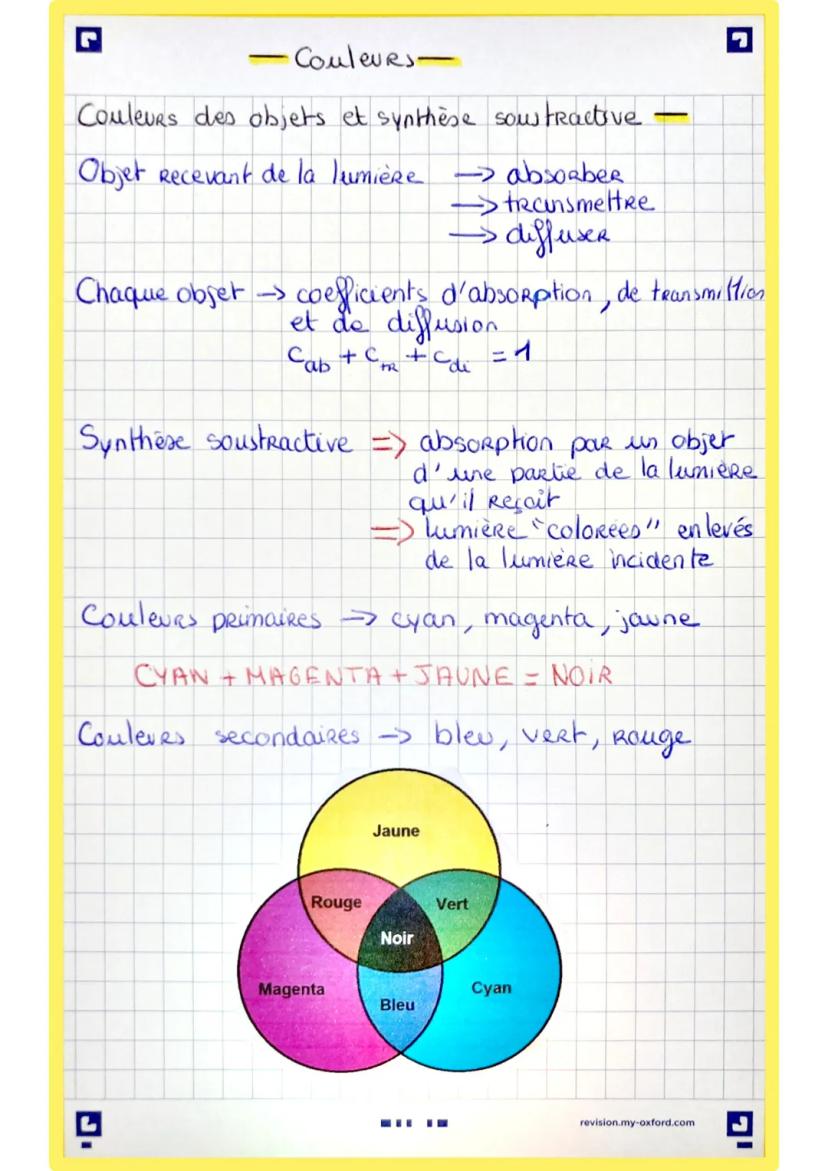 — Couleurs —
Couleurs des objets et synthèse soustractive —
Objet recevant de la lumière → absorber
→ transmettre
→ diffuser
Chaque objet → coefficients d'absorption, de transmission
et de diffusion
C_ab + C_tr + C_di = 1
Synthèse soustractive => absorption par un objet
d'une partie de la lumière
qu'il reçoit
=> lumière "colorées" enlevés
de la lumière incidente
Couleurs primaires → cyan, magenta, jaune
CYAN + MAGENTA + JAUNE = NOIR
Couleurs secondaires → bleu, vert, rouge
Jaune
Rouge
Vert
Noir
Magenta
Cyan
Bleu
revision.my-oxford.com